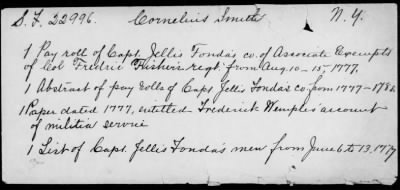 S.F. 22996. Cornelius Smith N.Y.
1 Pay roll of Capt. Jellis Fonda's co. of Associate Exempts
of Col Fredric Fisher's regt. from Aug. 10-15, 1777.
1 Abstract of pay rolls of Capt. Jellis Fonda's co. from 1777-1781.
1 Paper dated 1777, entitled Frederick Wemple's account
of militia service
1 List of Capt. Jellis Fonda's men from June 6 to 13, 1779